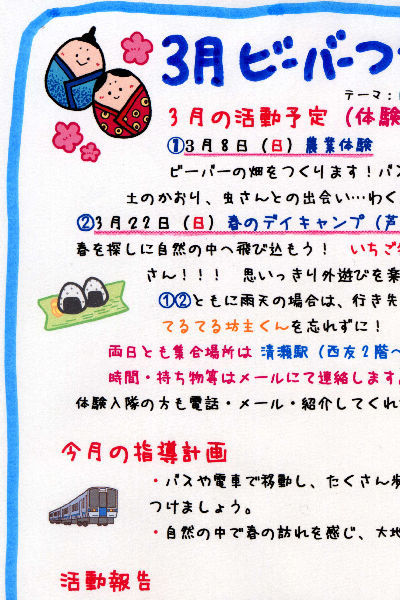 3月ビーバーつ
テーマ:
3月の活動予定 (体験
①3月8日 (日) 農業体験
ビーバーの畑をつくります!バス
土のかおり、虫さんとの出会い…わく
②3月22日 (日) 春のデイキャンプ (芦
春を探しに自然の中へ飛び込もう! いちご
さん!!! 思いっきり外遊びを楽
①②ともに雨天の場合は、行き先
てるてる坊主くんを忘れずに!
両日とも集合場所は 清瀬駅 (西友2階へ
時間・持ち物等はメールにて連絡します。
体験入隊の方も電話・メール・紹介してくれ
今月の指導計画
・バスや電車で移動し、たくさん歩
つけましょう。
・自然の中で春の訪れを感じ、大地
活動報告